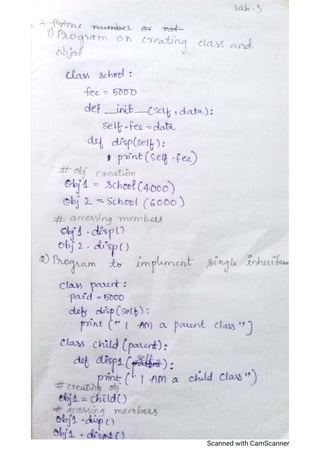 lab-5
1) Program on creating class and
object
class school:
fee = 5000
def __init__(self, data):
self.fee = data
def disp(self):
print(self.fee)
# obj creation
Obj1 = School(4000)
Obj 2 = School (6000)
# accessing members
Obj1.disp()
Obj 2. disp()
2) Program to implement single inheritance
class parent:
paid = 5000
def disp(self):
print (" I AM a parent class")
class child (parent):
def disp1 (self):
print (" I AM a child class")
# creating obj
obj1 = child()
# accessing members
Obj1.disp()
Obj1.disp1()
Scanned with CamScanner